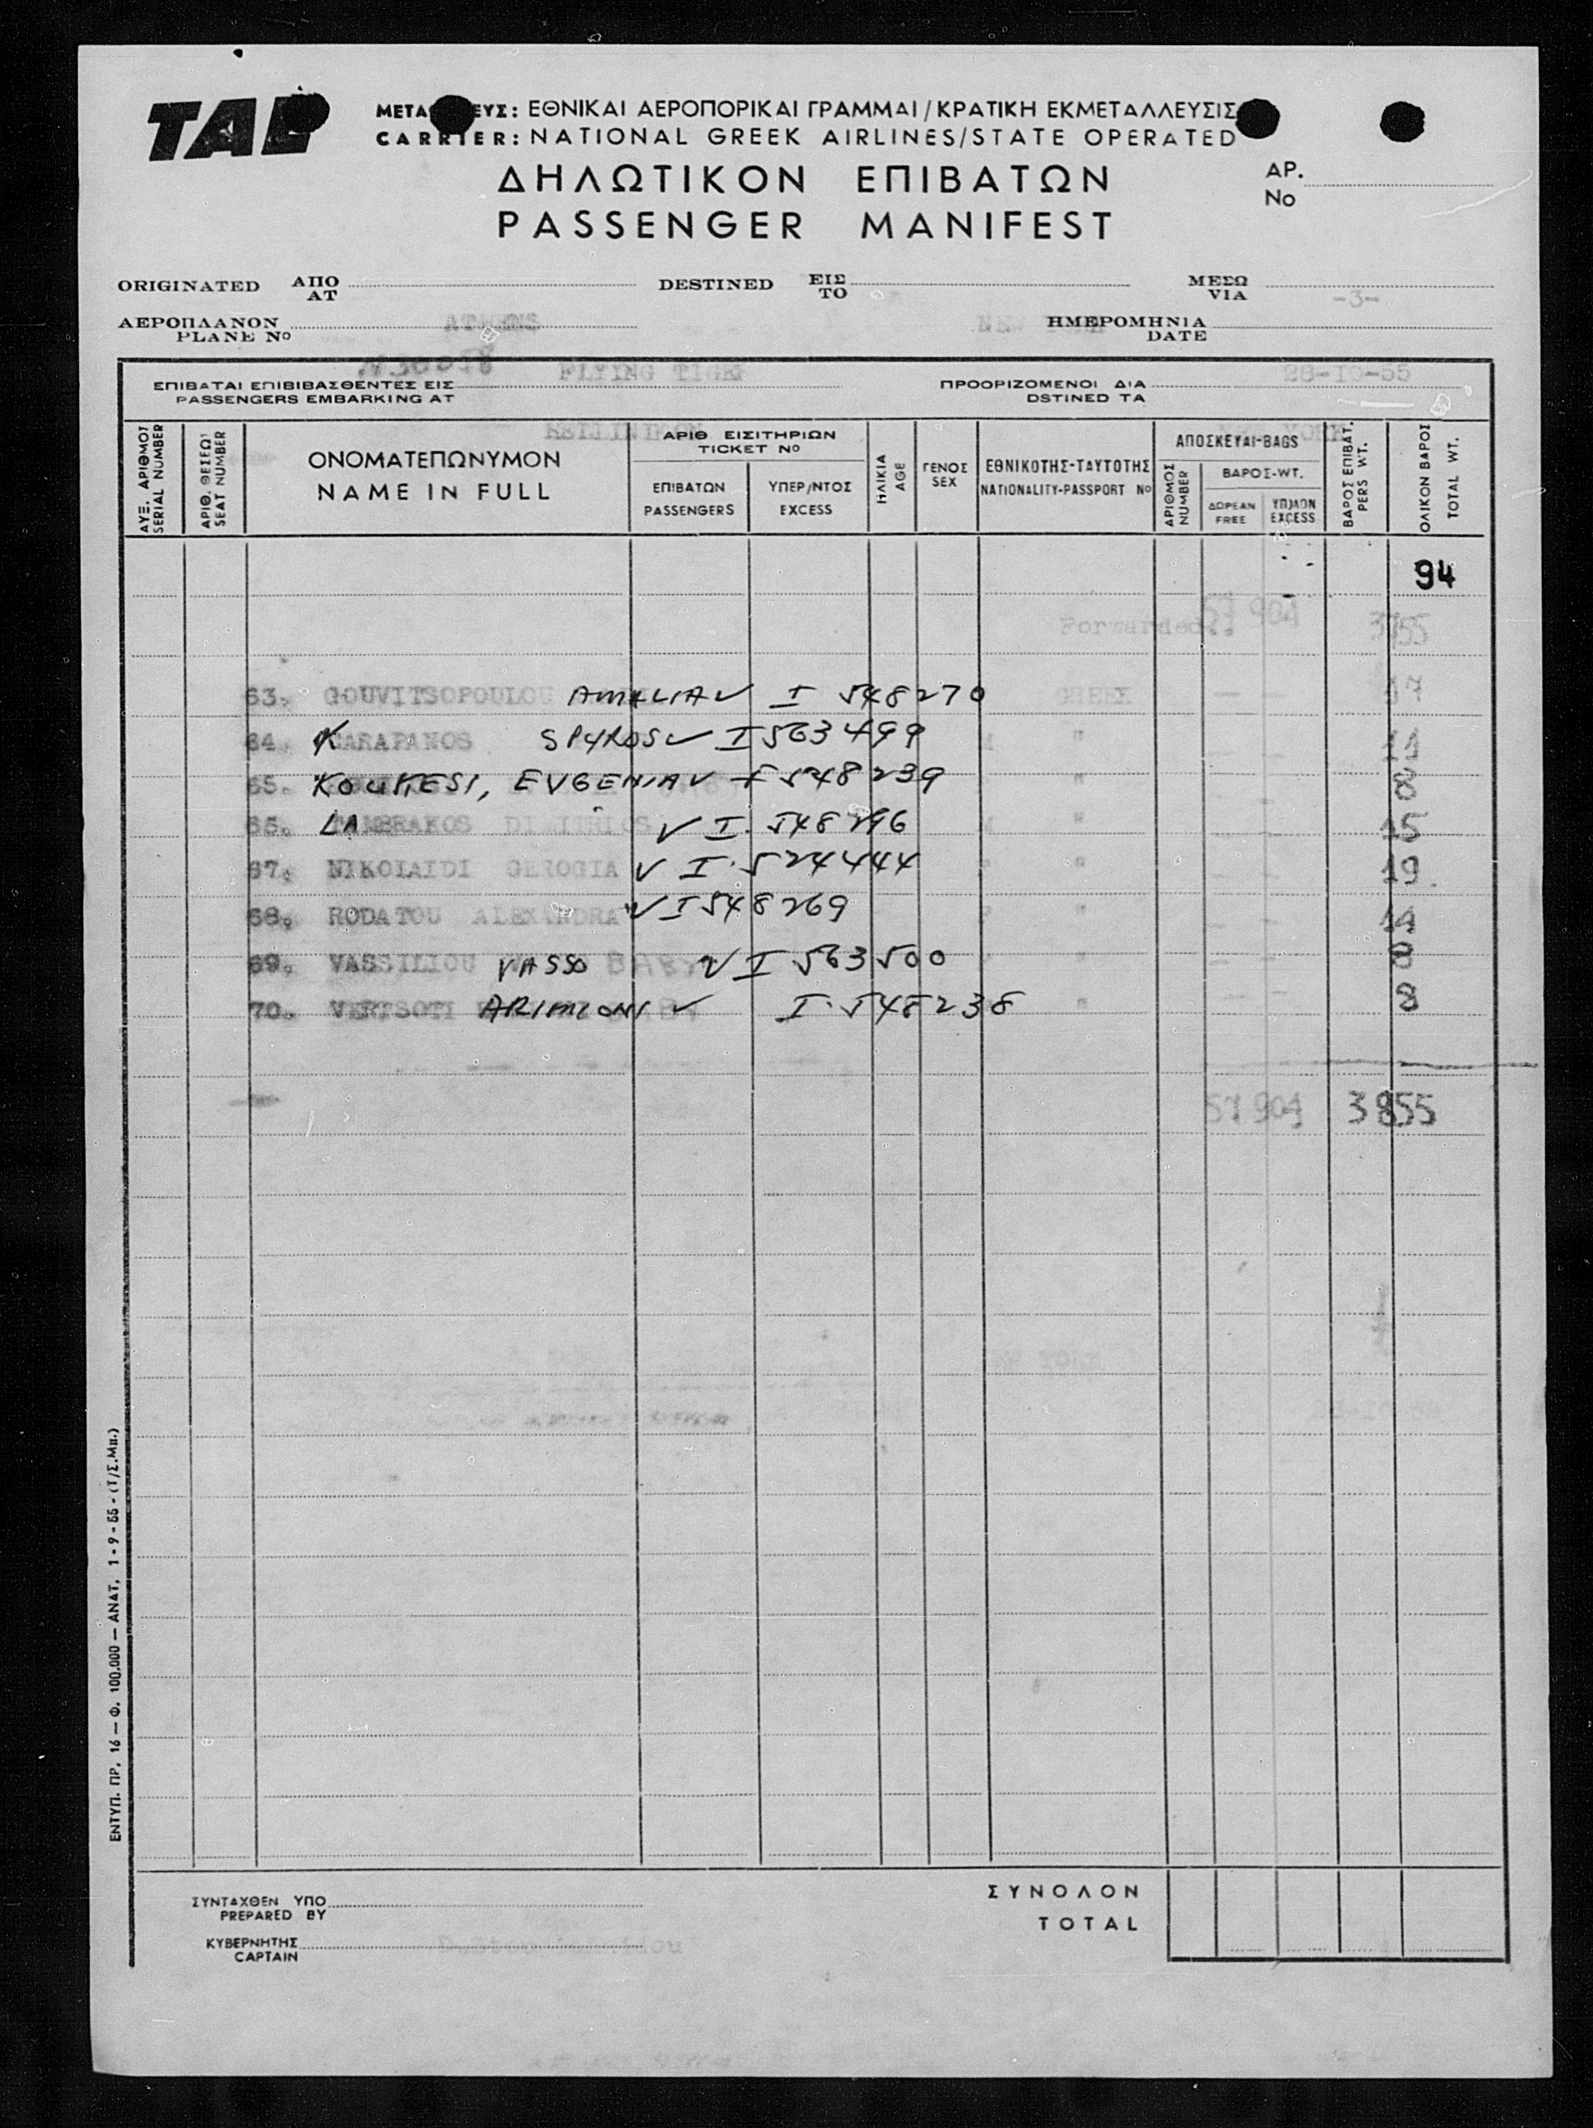 TAE
ΕΘΝΙΚΑΙ ΑΕΡΟΠΟΡΙΚΑΙ ΓΡΑΜΜΑΙ/ΚΡΑΤΙΚΗ ΕΚΜΕΤΑΛΛΕΥΣΙΣ
CARRIER: NATIONAL GREEK AIRLINES/STATE OPERATED
ΔΗΛΩΤΙΚΟΝ ΕΠΙΒΑΤΩΝ
PASSENGER MANIFEST
ΑΡ.
No
ORIGINATED ΑΠΟ AT DESTINED ΕΙΣ TO ΜΕΣΩ VIA
-3-
ΑΕΡΟΠΛΑΝΟΝ PLANE No ATHENS NEW ΗΜΕΡΟΜΗΝΙΑ DATE
FLYING TIGER 28-10-55
ΕΠΙΒΑΤΑΙ ΕΠΙΒΙΒΑΣΘΕΝΤΕΣ ΕΙΣ ΠΡΟΟΡΙΖΟΜΕΝΟΙ ΔΙΑ
PASSENGERS EMBARKING AT DSTINED TA
YORK
ΑΥΞ. ΑΡΙΘΜΟΣ SERIAL NUMBER
ΑΡΙΘ. ΘΕΣΕΩΣ SEAT NUMBER
ΟΝΟΜΑΤΕΠΩΝΥΜΟΝ
NAME IN FULL
ΑΡΙΘ ΕΙΣΙΤΗΡΙΩΝ
TICKET No
ΕΠΙΒΑΤΩΝ PASSENGERS
ΥΠΕΡ/ΝΤΟΣ EXCESS
ΗΛΙΚΙΑ AGE
ΓΕΝΟΣ SEX
ΕΘΝΙΚΟΤΗΣ-ΤΑΥΤΟΤΗΣ
NATIONALITY-PASSPORT No
ΑΠΟΣΚΕΥΑΙ-BAGS
ΑΡΙΘΜΟΣ NUMBER
ΒΑΡΟΣ-WT.
ΔΩΡΕΑΝ FREE
EXCESS
ΒΑΡΟΣ ΕΠΙΒΑΤ. PERS WT.
ΟΛΙΚΟΝ ΒΑΡΟΣ TOTAL WT.
94
Forwarded.. 57 904 3755
63. GOUVITSOPOULOU AMALIA ✓ I 548270 GREEK 17
64. KARAPANOS SPYROS ✓ I 563499 " 11
65. KOUKESI, EVGENIA ✓ I 548239 " 8
66. LAMBRAKOS DIMITRIOS ✓ I. 548296 " 15
67. NIKOLAIDI GEROGIA ✓ I. 524444 " 19
68. RODATOU ALEXANDRA ✓ I 548269 " 14
69. VASSILIOU VASSO ✓ I 563500 " 8
70. VERTSOTI ARIMIONI ✓ I. 548238 " 8
57 904 3855
ΣΥΝΤΑΧΘΕΝ ΥΠΟ
PREPARED BY
ΚΥΒΕΡΝΗΤΗΣ
CAPTAIN
ΣΥΝΟΛΟΝ
TOTAL
ΕΝΤΥΠ. ΠΡ. 16 — Φ. 100.000 — ΑΝΑΤ. 1-9-55 - (Τ/Σ.Μπ.)